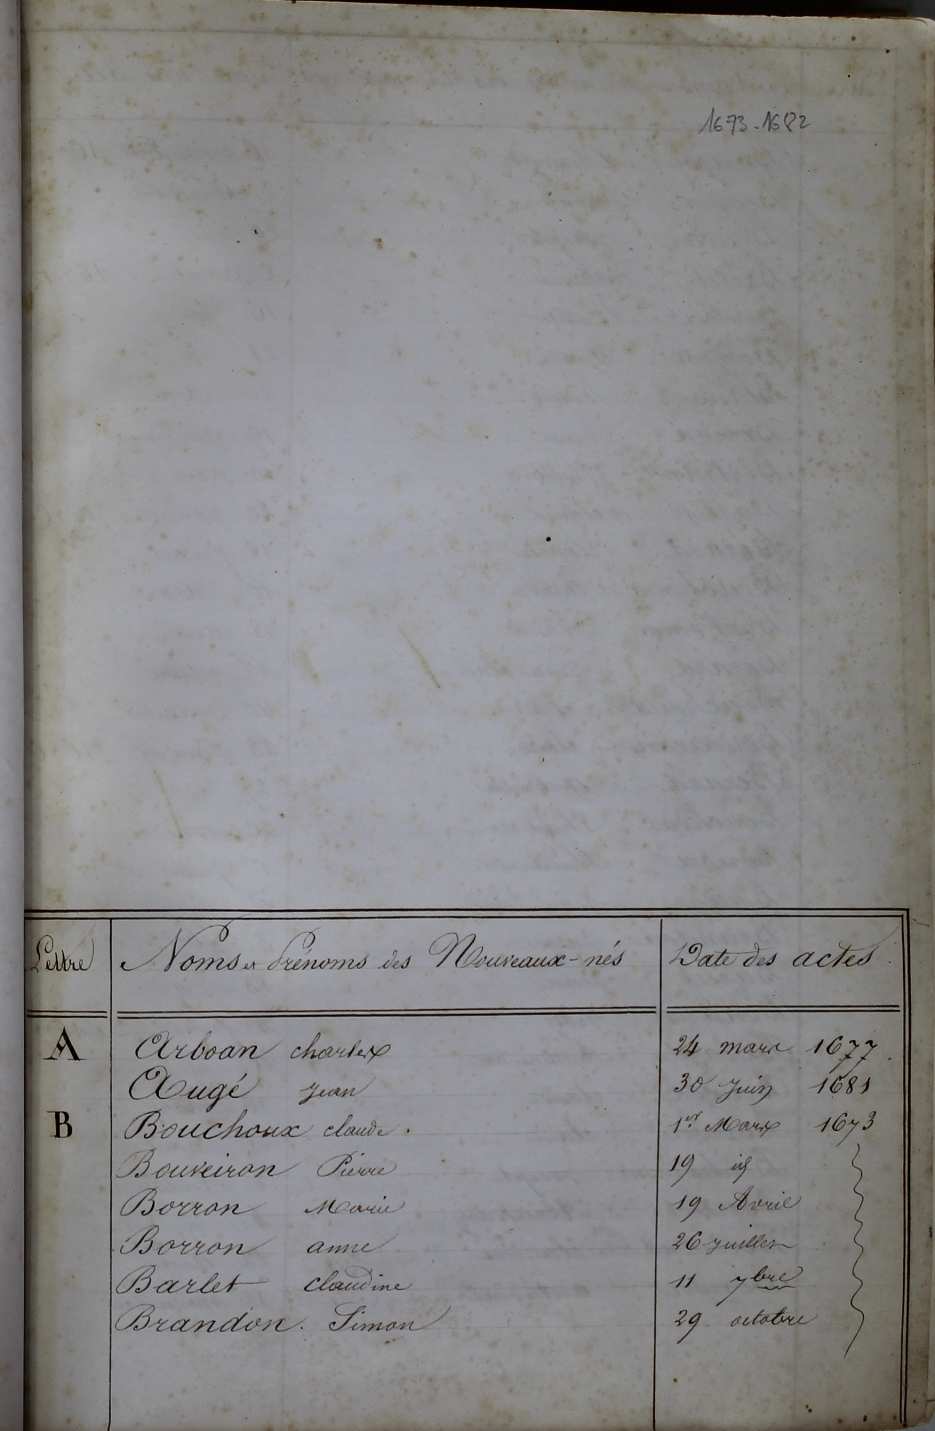 1673-1682
Lettre Noms et Prénoms des Nouveaux-nés Date des actes
A Arboan charles 24 mars 1677
Augé jean 30 juin 1681
B Bouchoux claude. 1er Mars 1673
Bouveiron Pierre 19 id
Borron Marie 19 Avril
Borron anne 26 juillet
Barlet claudine 11 7bre
Brandon. Simon 29 octobre